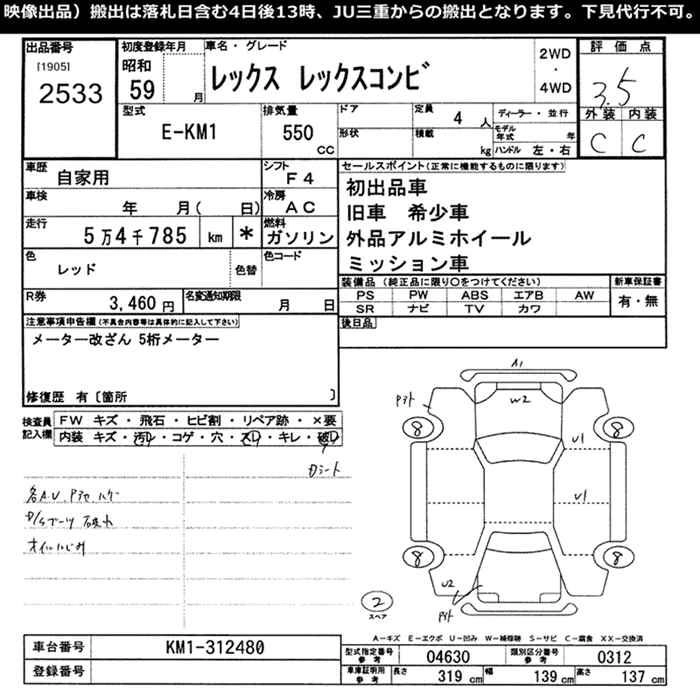 映像出品）搬出は落札日含む4日後13時、JU三重からの搬出となります。下見代行不可。
出品番号
[1905]
2533
初度登録年月
昭和
59 月
車名・グレード
レックス レックスコンビ
2WD
・
4WD
評価点
3.5
外装 内装
C C
型式
E-KM1
排気量
550 cc
ドア
形状
定員
4 人
積載
kg
ディーラー・並行
モデル年式 年
ハンドル 左・右
車歴
自家用
シフト
F4
車検
年 月( 日)
冷房
AC
走行
5万4千785 km *
燃料
ガソリン
色
レッド
色替
色コード
R券
3,460円
名変通知期限
月 日
セールスポイント(正常に機能するものに限ります)
初出品車
旧車 希少車
外品アルミホイール
ミッション車
装備品 (純正品に限り〇をつけてください)
PS PW ABS エアB AW
SR ナビ TV カワ
新車保証書
有・無
後日品
注意事項申告欄(不具合内容等は具体的に記入して下さい)
メーター改ざん 5桁メーター
修復歴 有〔箇所 〕
検査員記入欄
FW キズ・飛石・ヒビ割・リペア跡・×要
内装 キズ・汚レ・コゲ・穴・スレ・キレ・破レ
シート
オイルにじみ
A1
W2
8
8
U1
U1
8
8
U2
2
スペア
A-キズ E-エクボ U-凹み W-補修跡 S-サビ C-腐食 XX-交換済
車台番号
KM1-312480
登録番号
型式指定番号
参考
04630
類別区分番号
参考
0312
車庫証明用
参考
長さ 319 cm
幅 139 cm
高さ 137 cm